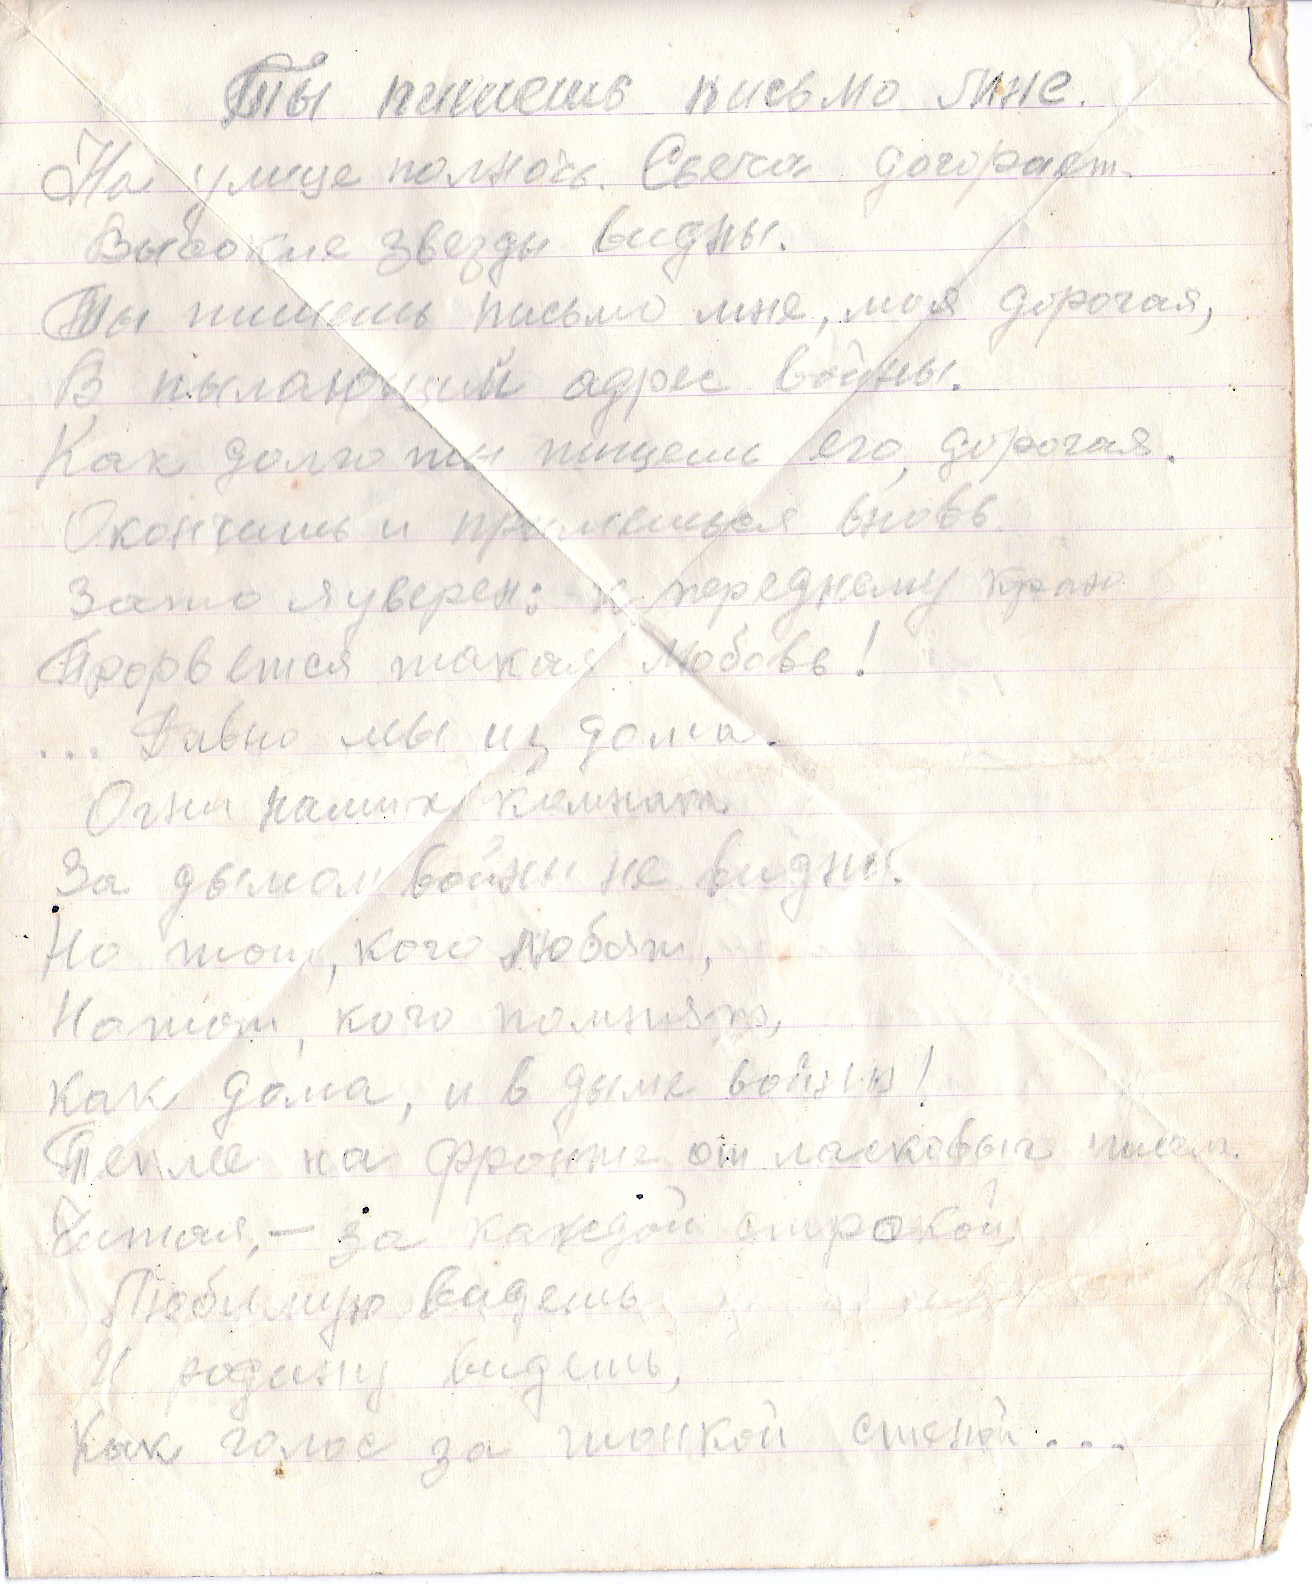 Ты пишешь письмо мне.
На улице полночь. Свеча догорает.
Высокие звезды видны.
Ты пишешь письмо мне, моя дорогая,
В пылающий адрес войны.
Как долго ты пишешь его, дорогая.
Окончишь и примешься вновь.
Зато я уверен: к переднему краю
Прорвется такая любовь!
... Давно мы из дома.
Огни наших комнат
За дымом войны не видны.
Но тот, кого любят,
Но тот, кого помнят,
Как дома, и в дыме войны!
Теплее на фронте от ласковых писем.
Читая, – за каждой строкой
Любимую видешь
И родину видешь,
Как голос за тонкой стеной...